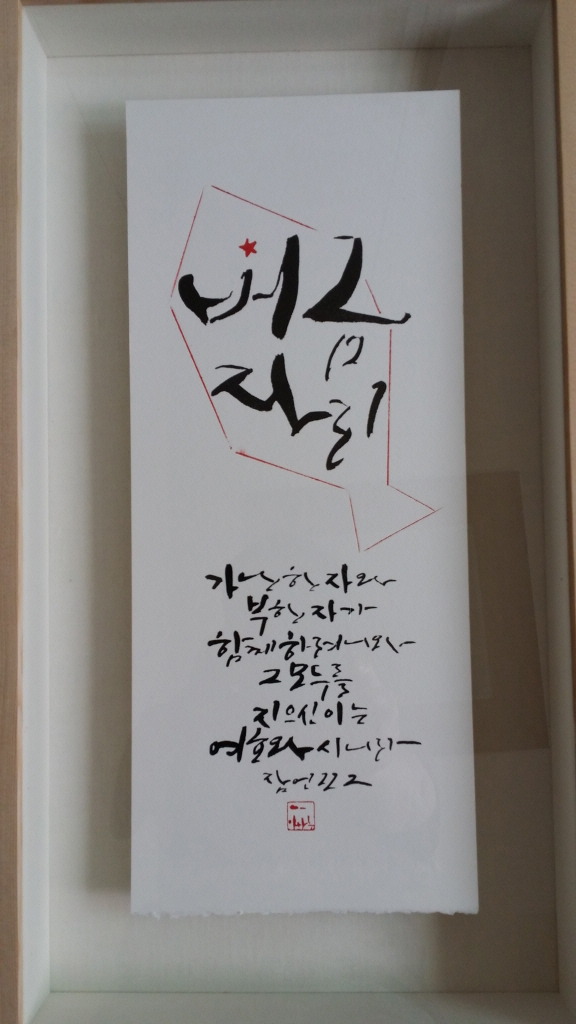 버금
자리
가난한 자와
부한 자가
함께 하려니와
그 모두를
지으신 이는
여호와시니라
잠언 22 2